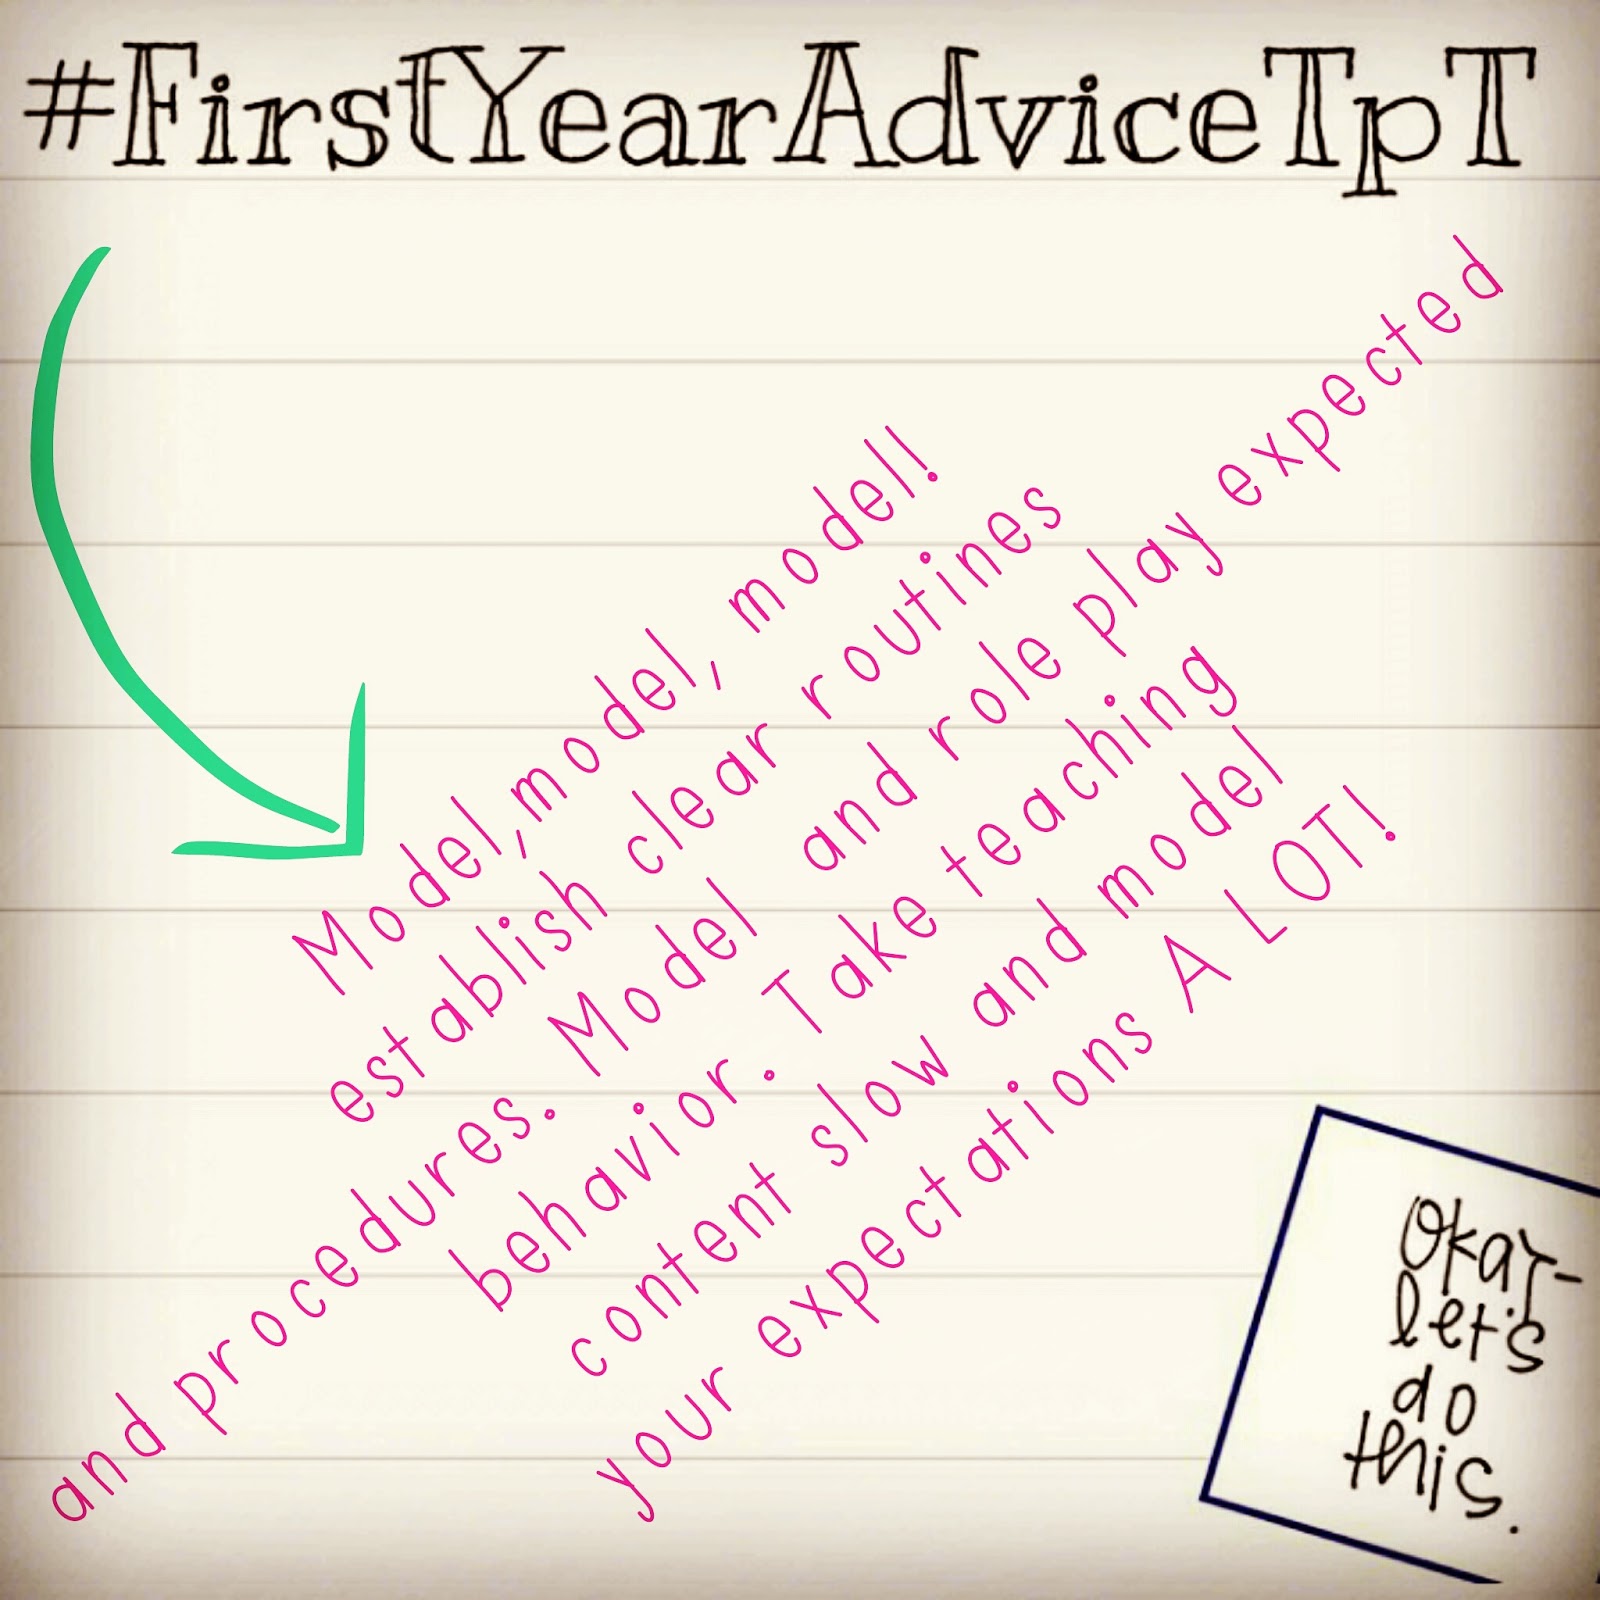 #FirstYearAdviceTpT
Model,model, model!
establish clear routines
and procedures. Model and role play expected
behavior. Take teaching
content slow and model
your expectations A LOT!
Okay-
let's
do
this.